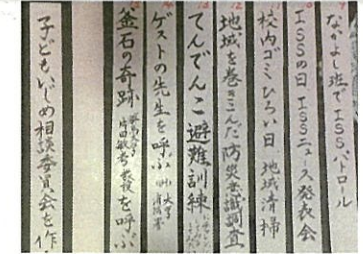 なかよし班でISSパトロール
ISSの日 ISSニュース発表会
校内ゴミひろい日 地域清掃
地域を巻きこんだ防災意識調査
てんでんこ避難訓練
ゲストの先生を呼ぶ
釜石の奇跡 片田敏孝教授を呼ぶ
子どもいじめ相談委員会を作